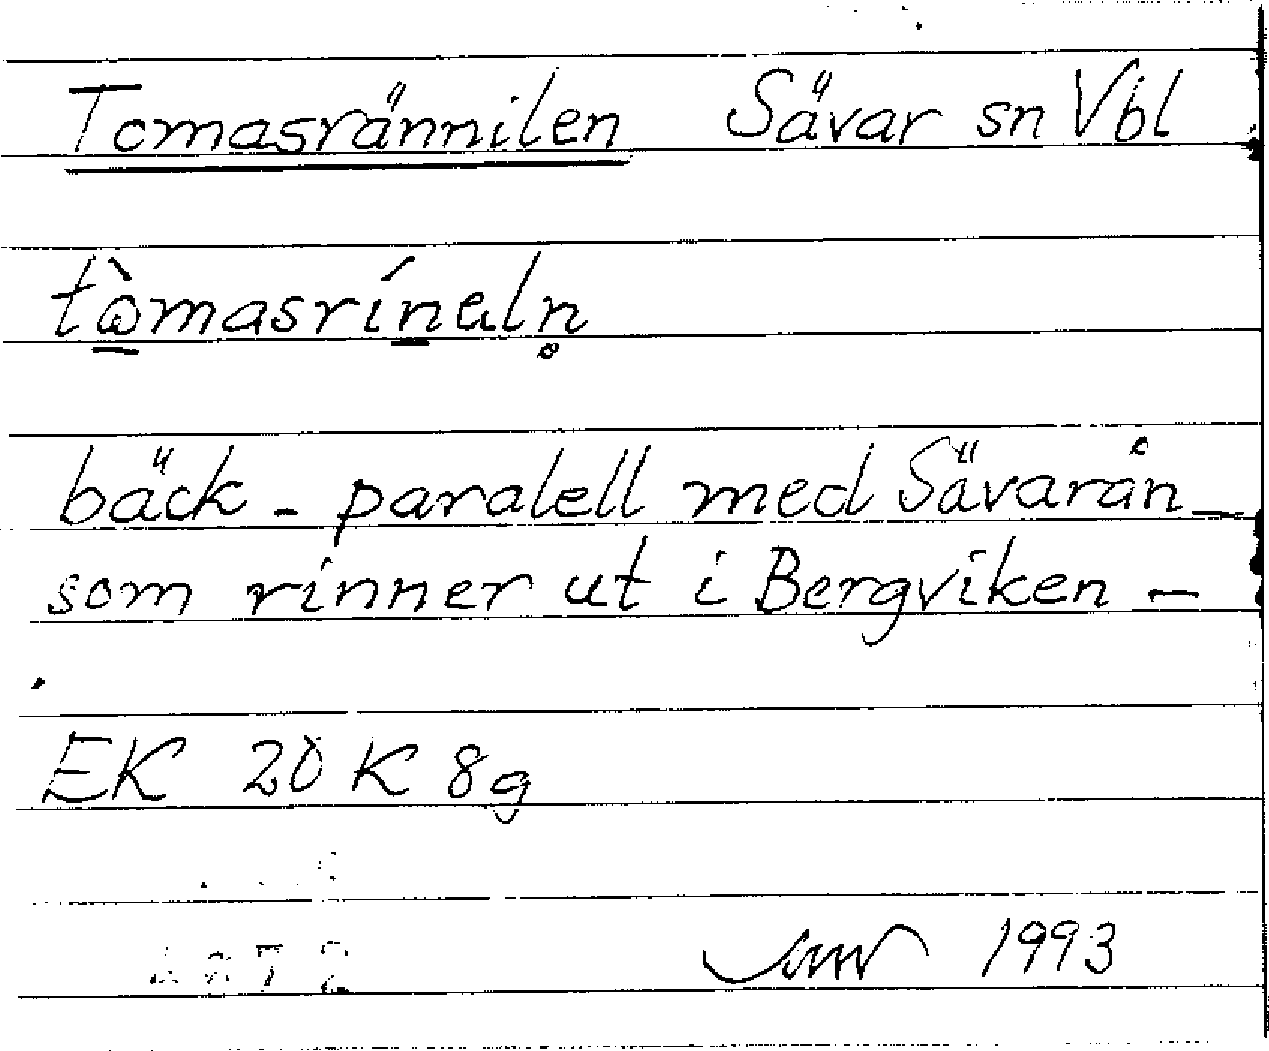 Tomasrännilen Sävar sn Vbl
tὼ̲masrín̲αln̥
bäck - paralell med Sävarån -
som rinner ut i Bergviken -
EK 20 K 8g
1993